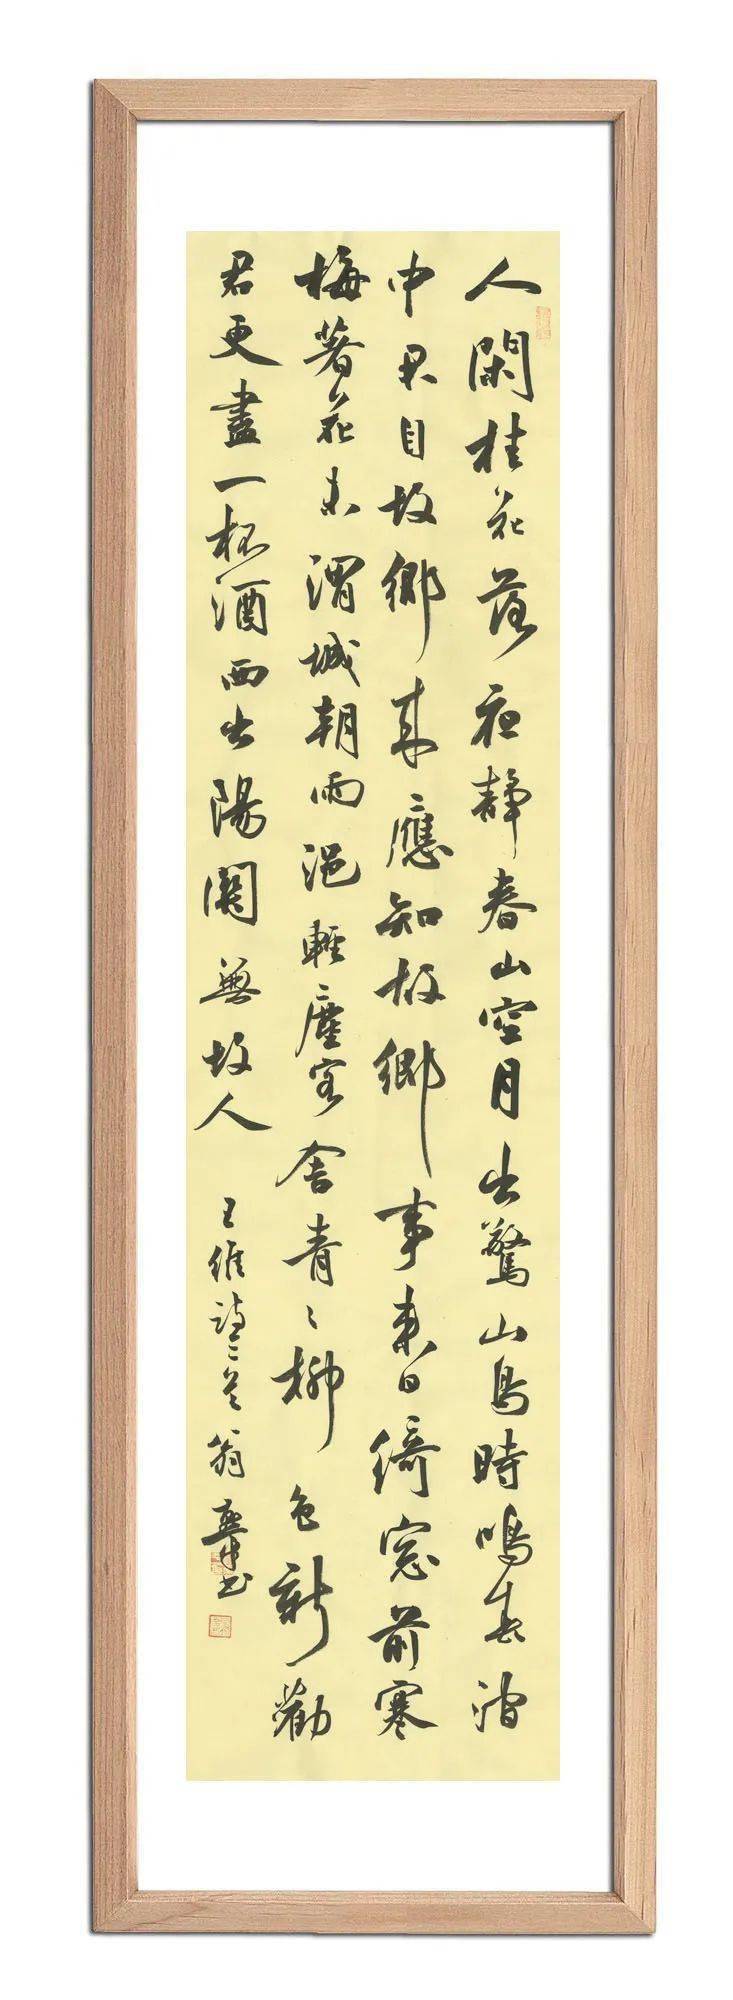 人閑桂花落夜靜春山空月出驚山鳥時鳴春澗
中君自故鄉來應知故鄉事來日綺窗前寒
梅著花未渭城朝雨浥輕塵客舍青〻柳色新勸
君更盡一杯酒西出陽關無故人 王維詩三首 翁 書